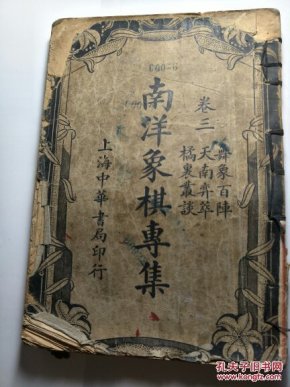 卷三
舞象百陣
天南弈萃
橘裏叢談
南洋象棋專集
上海中華書局印行
孔夫子旧书网